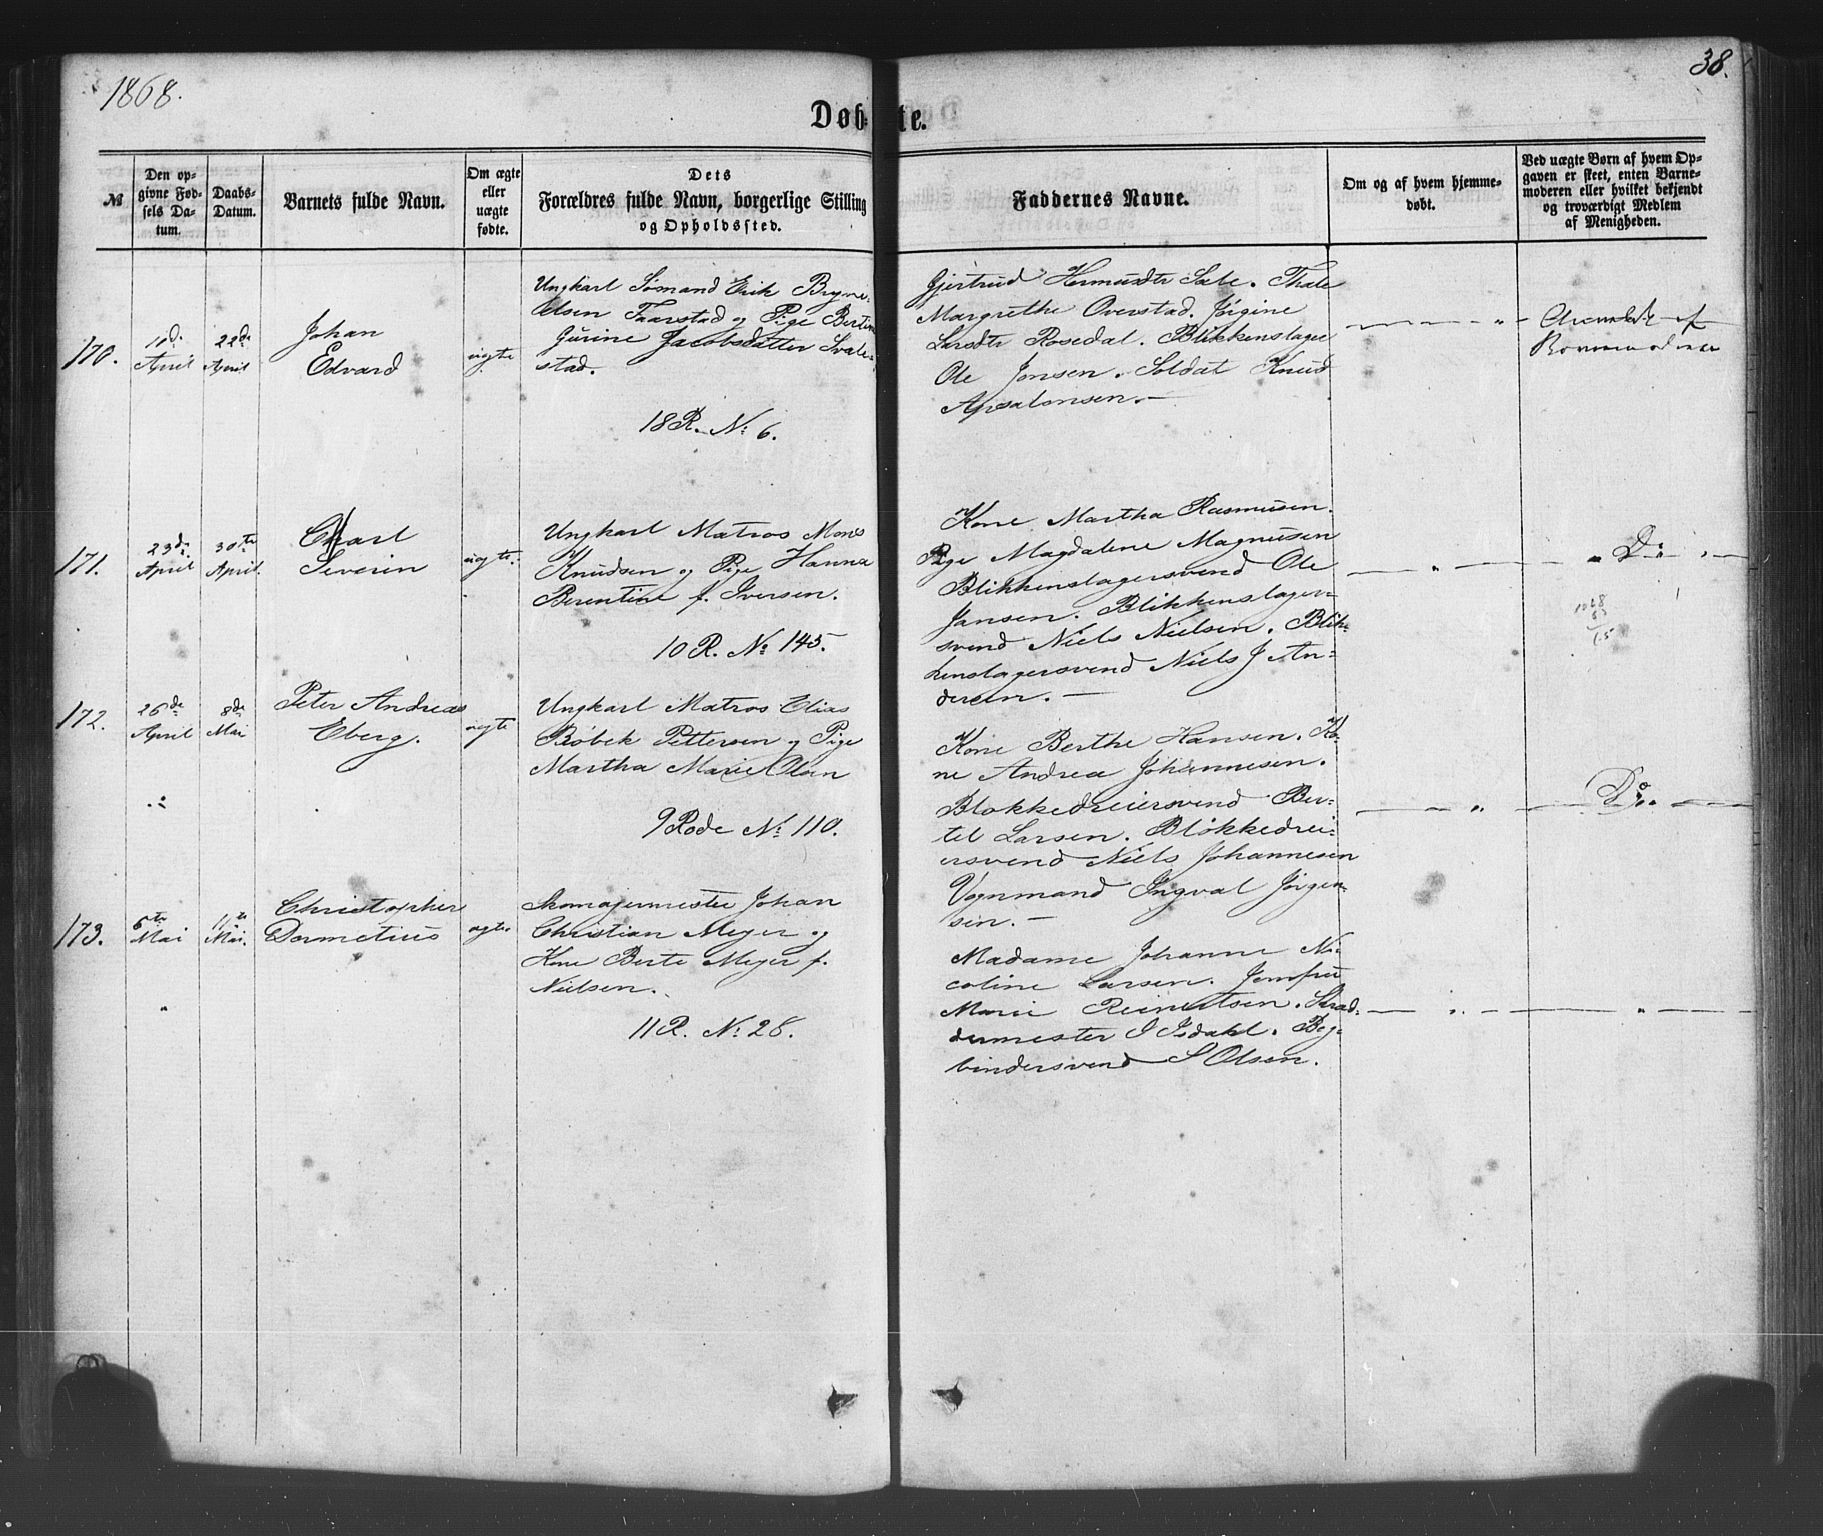 1868.
38.
Døbte.
№
Den op-
givne Fød-
sels Da-
tum.
Daabs-
Datum.
Barnets fulde Navn.
Om ægte
eller
uægte
fødte.
Dets
Forældres fulde Navn, borgerlige Stilling
og Opholdssted.
Faddernes Navne.
Om og af hvem hjemme-
døbt.
Ved uægte Børn af hvem Op-
gaven er skeet, enten Barne-
moderen eller hvilket bekjendt
og troværdigt Medlem
af Menigheden.
170.
10de
April
22de
April
Johan
Edvard
uægte
Ungkarl Sømand Erik Bryne-
elsen Taarstad og Pige Bertine
Gurine Jacobsdatter Svale-
stad.
18 R. No 6.
Gjertrud Hermundtr Sæle. Thale
Margrethe Overstad. Jørgine
Larsdtr Rosedal. Blikkenslager
Ole Jonsen. Soldat Knud
Apsalonsen.
af
171.
23de
April
30te
April.
Charl
Severin
uægte.
Ungkarl Matros Mons
Knudsen og Pige Hanna
Berentine f. Iversen.
10 R. No 145.
Kone Martha Rasmusen.
Pige Magdalene Magnusen
Blikkenslagersvend Ole
Jansen. Blikkenslager-
svend Niels Nielsen. Blik-
kenslagersvend Niels J An-
dersen.
Do
172.
26de
April
8de
Mai
Peter Andreas
Eberg.
uægte
Ungkarl Matros Elias
Bøbek Pettersen og Pige
Martha Marie Olsen
9 Rode No 110.
Kone Berthe Hansen. Ko-
ne Andrea Johannesen.
Blokkedreiersvend Ber-
tel Larsen. Blokkedrei-
ersvend Niels Johannesen
Vognmand Ingval Jørgen-
sen.
Do
173.
6te
Mai
11te
Mai.
Christopher
Dermetius
ægte
Skomagermester Johan
Christian Meyer og
Kone Berte Meyer f.
Nielsen.
11 R. No 28.
Madame Johanne Ni-
coline Larsen. Jomfru
Marie Reinertsen. Skræd-
dermester I Isdahl. Bog-
bindersvend S Olsen.